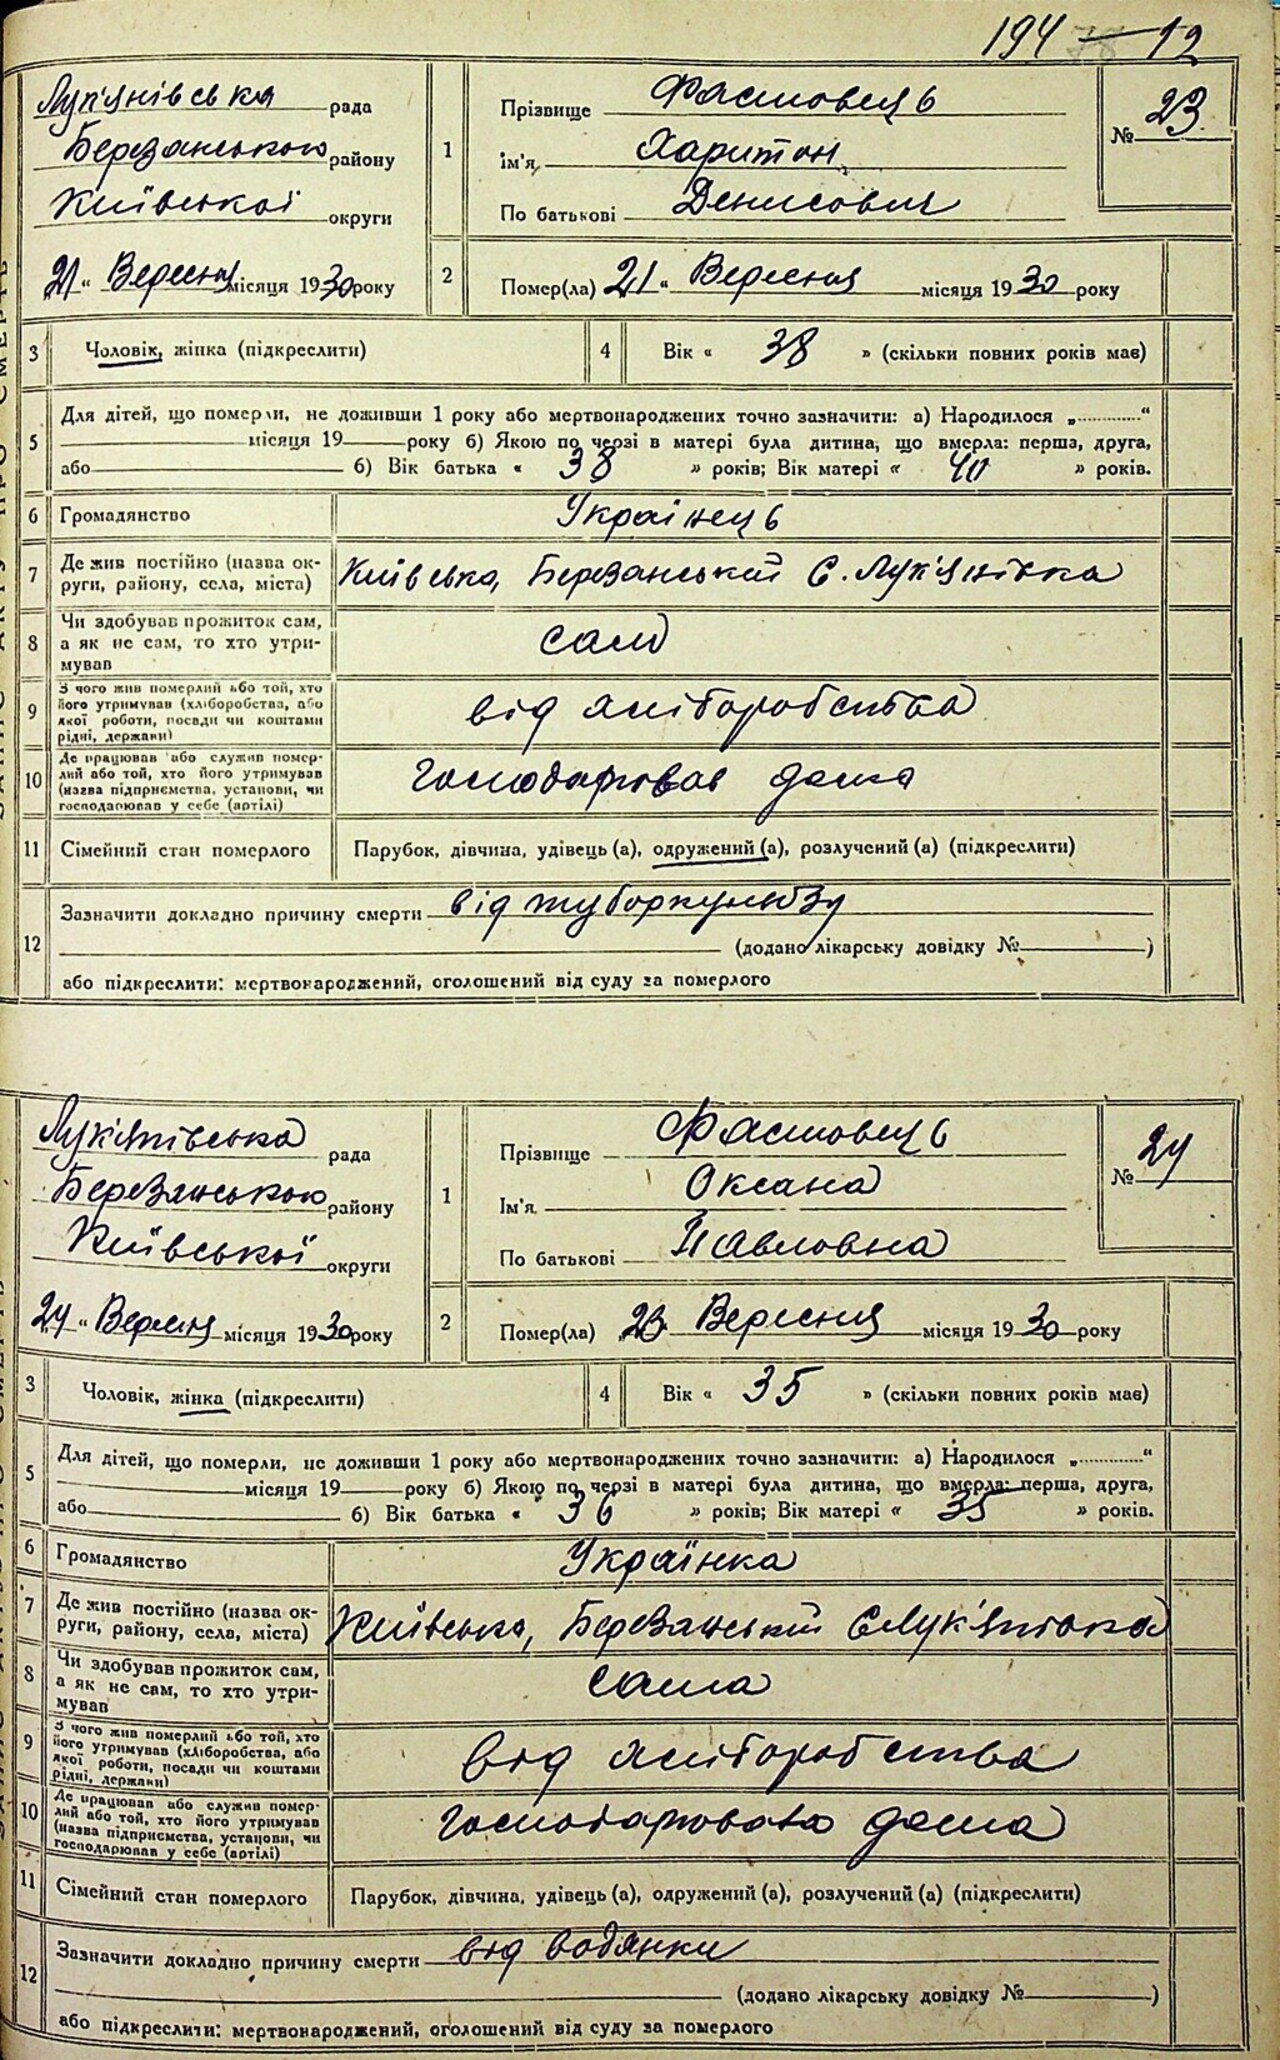 194 — 12
Лук'янівська рада
Березанського району
Київської округи
„21“ Вересня місяця 1930 року
1
Прізвище Фастовець
Ім'я Харитон
По батькові Денисович
№ 23
2
Помер(ла) 21 „ Вересня місяця 1930 року
3 Чоловік, жінка (підкреслити)
4 Вік « 38 » (скільки повних років має)
5 Для дітей, що померли, не доживши 1 року або мертвонароджених точно зазначити: а) Народилося „............“
місяця 19 року б) Якою по черзі в матері була дитина, що вмерла: перша, друга,
або б) Вік батька « 38 » років; Вік матері « 40 » років.
6 Громадянство Українець
7 Де жив постійно (назва округи, району, села, міста) Київська, Березанський С. Лук'янівка
8 Чи здобував прожиток сам,
а як не сам, то хто утримував сам
9 З чого жив померлий або той, хто
його утримував (хліборобства, або
якої роботи, посади чи коштами
рідні, держави) від хліборобства
10 Де працював або служив померлий або той, хто його утримував
(назва підприємства, установи, чи
господарював у себе (артілі) господарював дома
11 Сімейний стан померлого Парубок, дівчина, удівець (а), одружений (а), розлучений (а) (підкреслити)
12 Зазначити докладно причину смерти від туборкульозу
(додано лікарську довідку № )
або підкреслити: мертвонароджений, оголошений від суду за померлого
Лук'янівська рада
Березанського району
Київської округи
„24“ Вересня місяця 1930 року
1
Прізвище Фастовець
Ім'я Оксана
По батькові Павловна
№ 24
2
Помер(ла) 23 Вересния місяця 1930 року
3 Чоловік, жінка (підкреслити)
4 Вік « 35 » (скільки повних років має)
5 Для дітей, що померли, не доживши 1 року або мертвонароджених точно зазначити: а) Народилося „............“
місяця 19 року б) Якою по черзі в матері була дитина, що вмерла: перша, друга,
або б) Вік батька « 36 » років; Вік матері « 35 » років.
6 Громадянство Українка
7 Де жив постійно (назва округи, району, села, міста) Київська, Березанський С Лук'янівка
8 Чи здобував прожиток сам,
а як не сам, то хто утримував сама
9 З чого жив померлий або той, хто
його утримував (хліборобства, або
якої роботи, посади чи коштами
рідні, держави) від хліборобства
10 Де працював або служив померлий або той, хто його утримував
(назва підприємства, установи, чи
господарював у себе (артілі) господаровала дома
11 Сімейний стан померлого Парубок, дівчина, удівець (а), одружений (а), розлучений (а) (підкреслити)
12 Зазначити докладно причину смерти від водянки
(додано лікарську довідку № )
або підкреслити: мертвонароджений, оголошений від суду за померлого